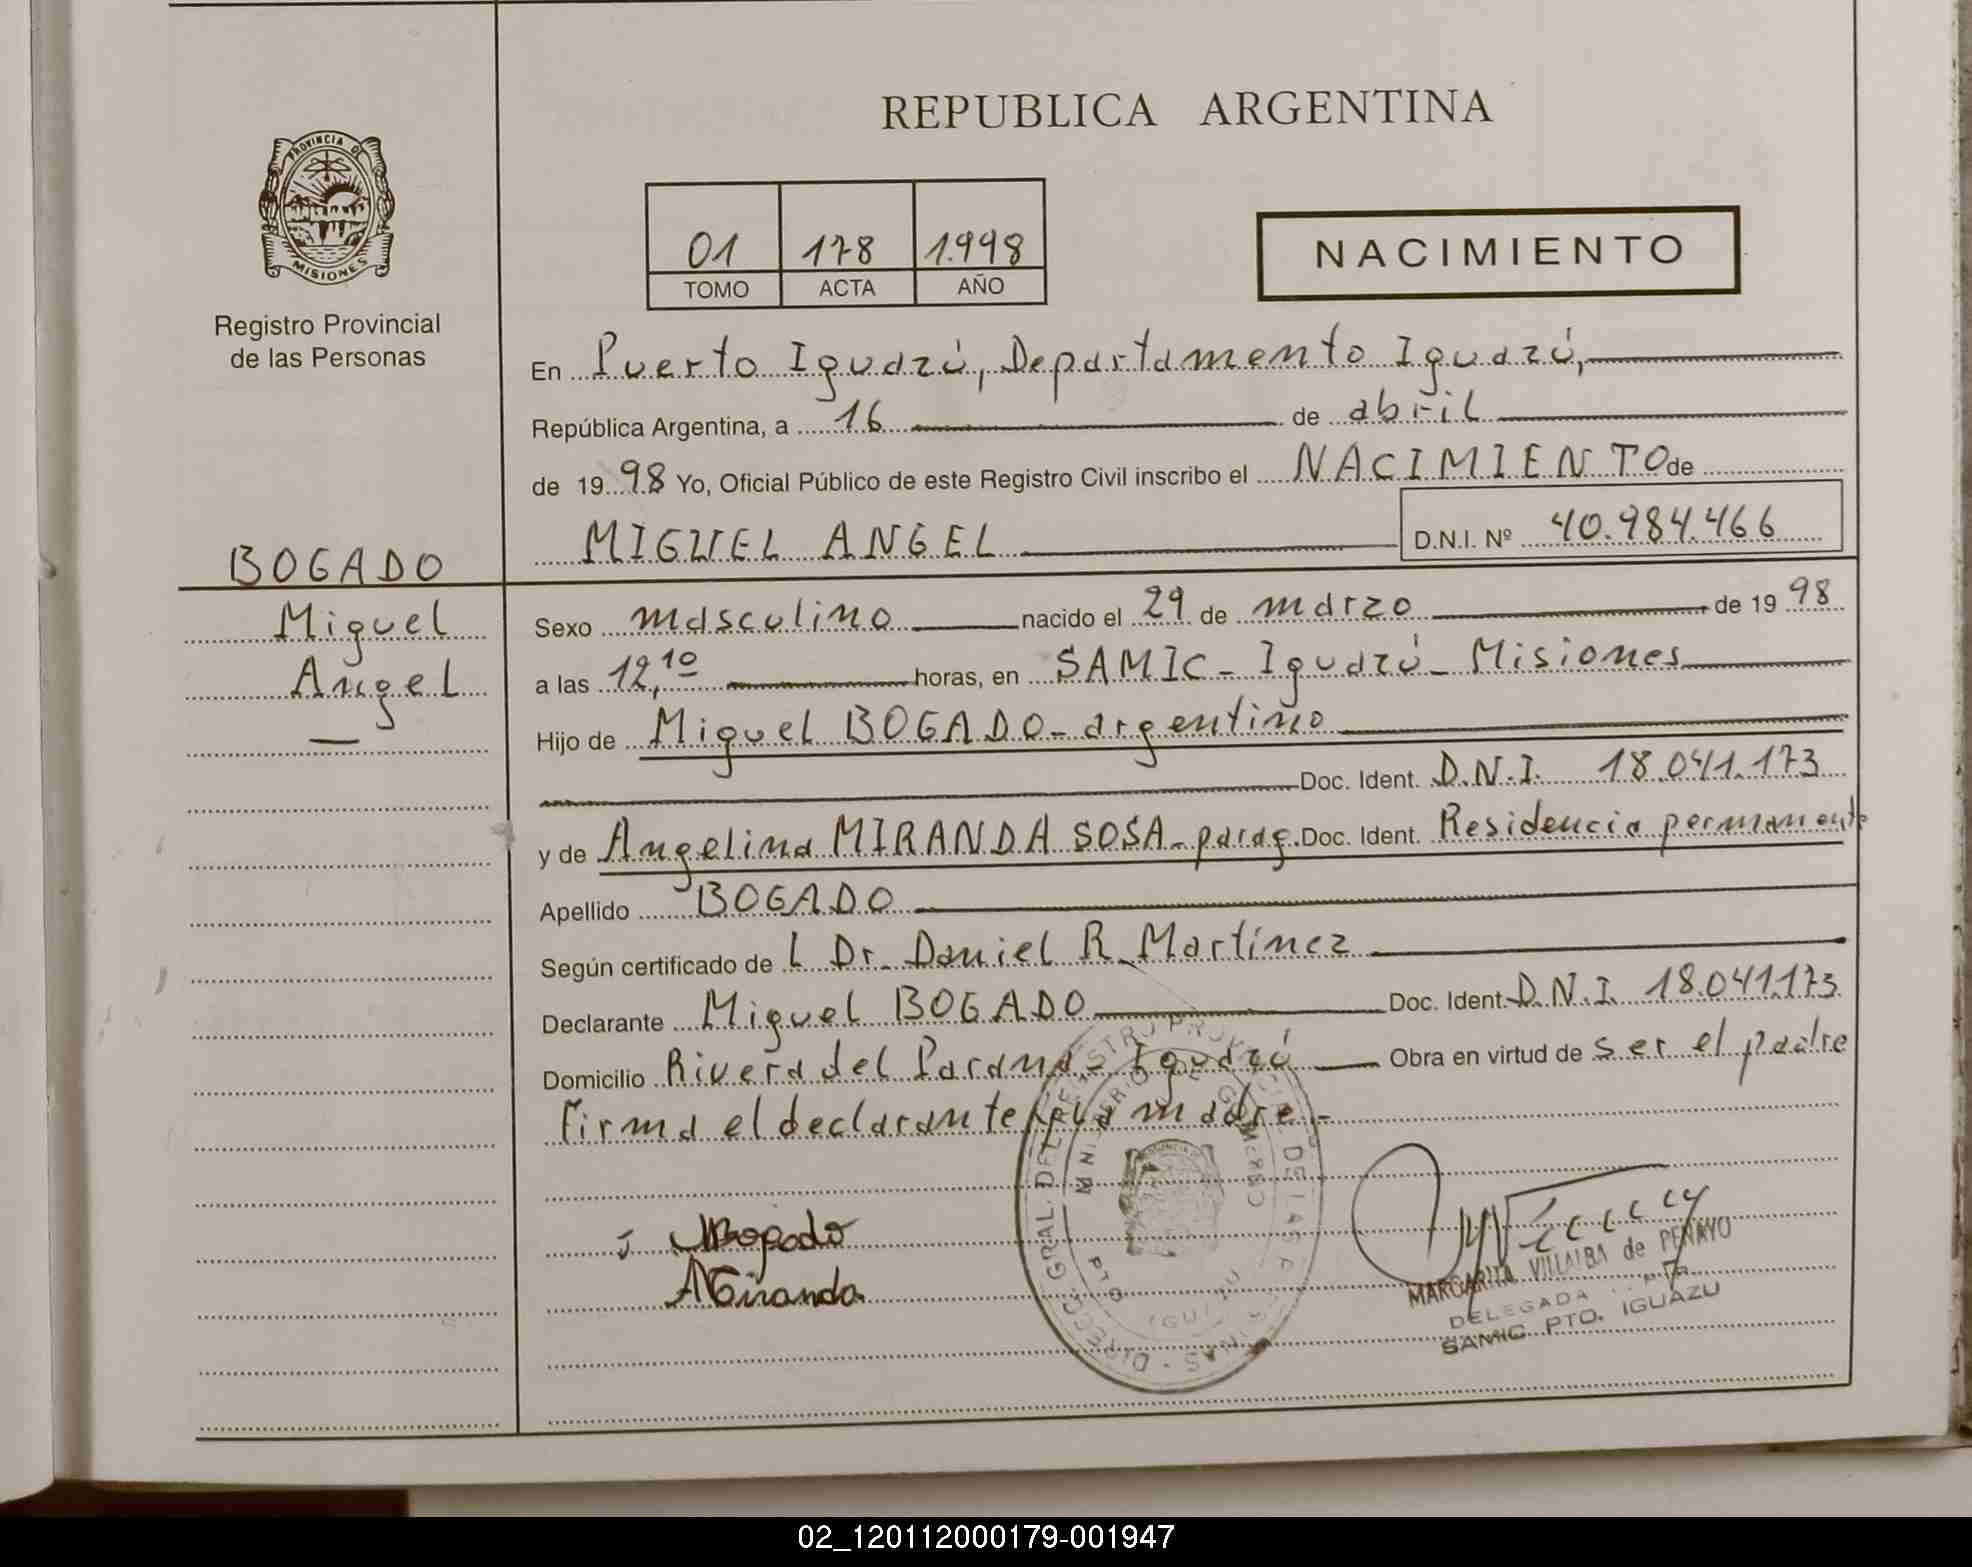 REPUBLICA ARGENTINA
PROVINCIA DE
MISIONES
Registro Provincial
de las Personas
01 178 1.998
TOMO ACTA AÑO
NACIMIENTO
En Puerto Iguazú, Departamento Iguazú,
República Argentina, a 16 de abril
de 1998 Yo, Oficial Público de este Registro Civil inscribo el NACIMIENTO de
MIGUEL ANGEL D.N.I. Nº 40.984.466
BOGADO
Miguel
Angel
Sexo masculino nacido el 29 de marzo de 1998
a las 12,10 horas, en SAMIC - Iguazú - Misiones
Hijo de Miguel BOGADO - argentino
Doc. Ident. D.N.I. 18.041.173
y de Angelina MIRANDA SOSA - parag. Doc. Ident. Residencia permanente
Apellido BOGADO
Según certificado de L Dr. Daniel R. Martínez
Declarante Miguel BOGADO Doc. Ident. D.N.I. 18.041.173
Domicilio Rivera del Paraná - Iguazú Obra en virtud de ser el padre
Firma el declarante y la madre -
MBogado
AMiranda
MARGARITA VILLALBA de PENAYO
DELEGADA
SAMIC PTO. IGUAZU
02_120112000179-001947